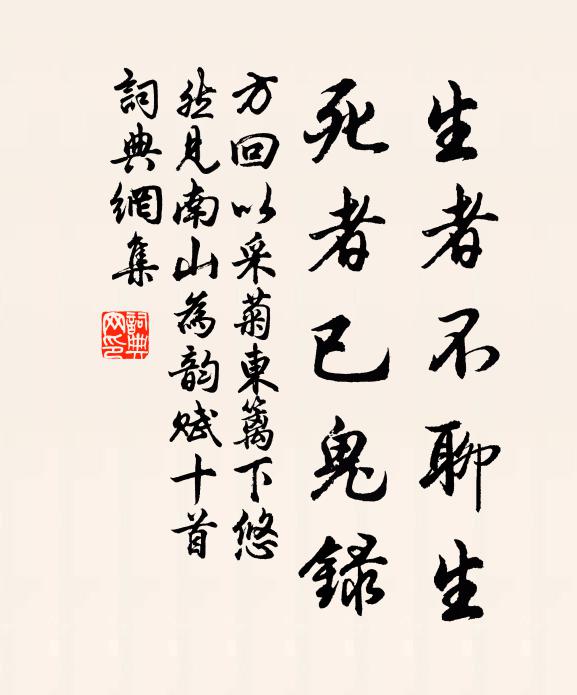 生者不聊生
死者已鬼録
方回以采菊東籬下悠
然見南山為韵賦十首
詞典網集
詞典
网印